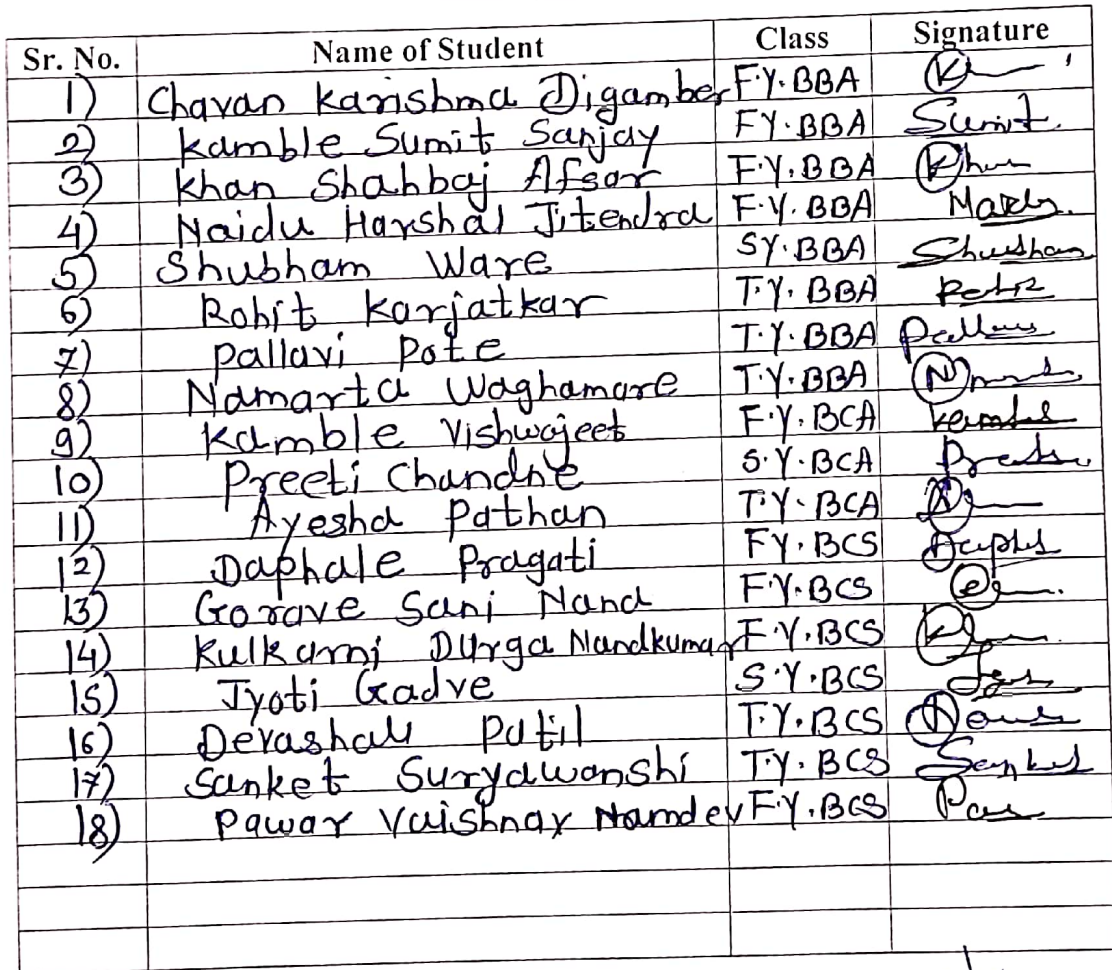 Sr. No. Name of Student Class Signature
1) Chavan Karishma Digamber F.Y. BBA
2) Kamble Sumit Sanjay FY. BBA Sumit.
3) Khan Shahbaj Afsar F.Y. BBA
4) Naidu Harshal Jitendra F.Y. BBA
5) Shubham Ware SY. BBA
6) Rohit Karjatkar T.Y. BBA
7) Pallavi Pote T.Y. BBA
8) Namarta Waghamare T.Y. BBA
9) Kamble Vishwajeet F.Y. BCA
10) Preeti Chandne S.Y. BCA
11) Ayesha Pathan T.Y. BCA
12) Daphale Pragati FY. BCS
13) Gorave Sani Nand F.Y. BCS
14) Kulkarni Durga Nandkumar F.Y. BCS
15) Jyoti Gadve S.Y. BCS
16) Devashali Patil T.Y. BCS
17) Sanket Suryawanshi T.Y. BCS Sanket
18) Pawar Vaishnav Namdev F.Y. BCS